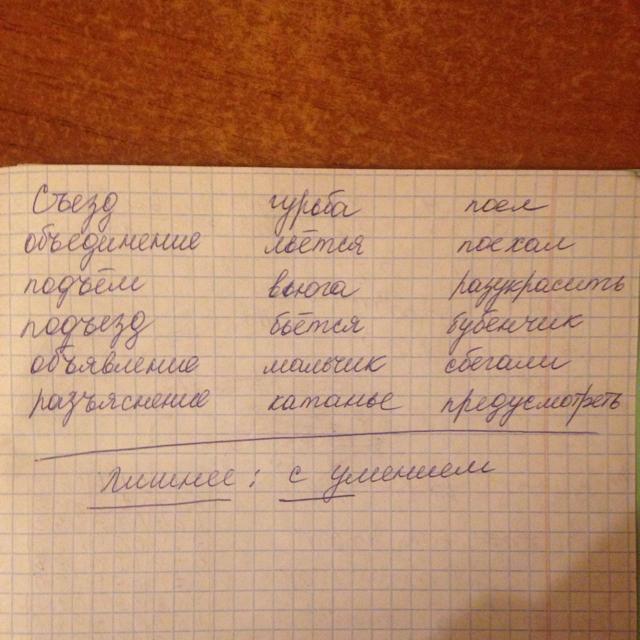 Съезд гурьба поел
объединение льётся поехал
подъём вьюга разукрасить
подъезд бьётся бубенчик
объявление мальчик сбегали
разъяснение катанье предусмотреть
Лишнее: с умением